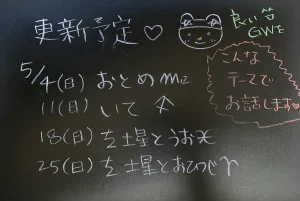 更新予定♡
良い
GWを
5/4(日) おとめ♍
11(日) いて♐
18(日) 土星とうお
25(日) 土星とおひつじ♈
こんな
テーマで
お話します